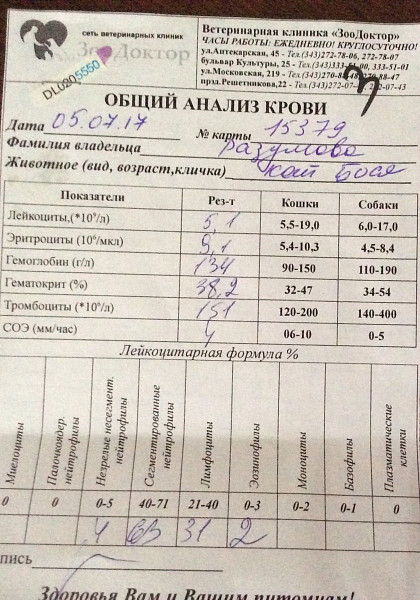 сеть ветеринарных клиник
ЗооДоктор
DLU205550
Ветеринарная клиника «ЗооДоктор»
ЧАСЫ РАБОТЫ: ЕЖЕДНЕВНО! КРУГЛОСУТОЧНО!
ул.Аптекарская, 45 - Тел.(343)272-78-06, 272-78-07
бульвар Культуры, 25 - Тел.(343) 333-51-01
ул.Московская, 219 - Тел.(343)270-88-47
пр.Решетникова,22 - Тел.(343)272-07-43
ОБЩИЙ АНАЛИЗ КРОВИ
Дата 05.07.17 № карты 15379
Фамилия владельца Разумова
Животное (вид, возраст,кличка) кот Бося
Показатели Рез-т Кошки Собаки
Лейкоциты,(*10⁹/л) 5,1 5,5-19,0 6,0-17,0
Эритроциты (10⁶/мкл) 9,1 5,4-10,3 4,5-8,4
Гемоглобин (г/л) 134 90-150 110-190
Гематокрит (%) 38,2 32-47 34-54
Тромбоциты (*10⁹л) 151 120-200 140-400
СОЭ (мм/час) 4 06-10 0-5
Лейкоцитарная формула %
Миелоциты Палочкоядер. нейтрофилы Незрелые несегмент. нейтрофилы Сегментированные нейтрофилы Лимфоциты Эозинофилы Моноциты Базофилы Плазматические клетки
0 0 0-5 40-71 21-40 0-3 0-2 0-1 0
4 63 31 2
пись
Здоровья Вам и Вашим питомцам!